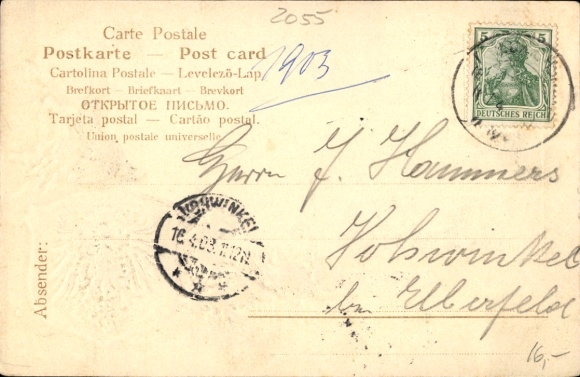 2055
Carte Postale
Postkarte — Post card
Cartolina Postale — Levelező-Lap.
Brefkort — Briefkaart — Brevkort
ОТКРЫТОЕ ПИСЬМО.
Tarjeta postal — Cartão postal.
Union postale universelle
1903
5 5
DEUTSCHES REICH
Herrn J. Hammers
Vohwinkel
bei Elberfeld
VOHWINKEL
Absender:
16,-